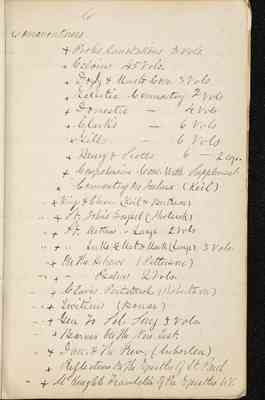 6
Commentaries
+ Poole's Annotations 3 vols.
Calvins 45 Vols.
& Mant's Com. 3 Vols
Eclectic Commentary 2 Vols
+ Domestic — 4 Vols
+ Clarke's — 6 Vols
+ Gill's — 6 Vols
+ Henry & Scotts 6 — 2
+ Comprehensive Com. With Supplement
Commentary on Joshua (Keil)
+ King & Chron. (Keil & Bertheau)
+ St. John's Gospel (Tholuck)
+ St. Matthew - Lange 2 Vols
+ " Luke & Mark (Lange) 3 Vols
+ On the Hebrews (Patterson)
+ " - Psalms 2 Vols.
+ Clavis Pentateuch (Robertson)
+ Leviticus (Bonar)
+ Gen. to Sol. Song 3 Vols
+ Barnes on the New Test.
+ Dan. & The Rev. (Auberlen)
+ Reflections on the Epistles of St. Paul
+ McKnights Translation of the Epistles